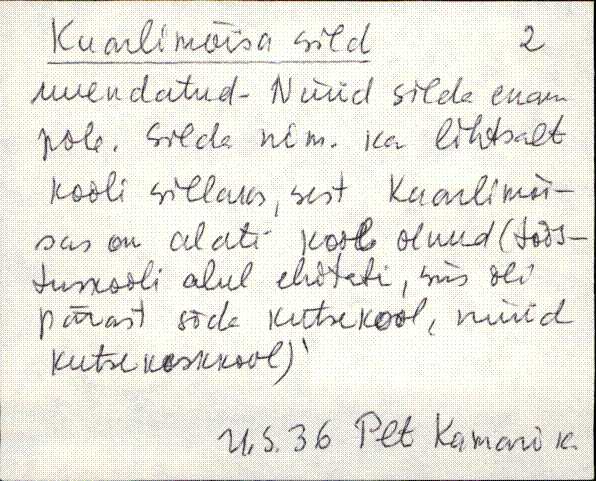 Kuarlimõisa sild 2
uuendatud - Nüüd silda enam
pole. Silda nim. ka lihtsalt
kooli sillaks, sest Kuarlimõi-
sas on alati kool olnud (töös-
tuskooli alul ehitati, siis oli
pärast sõda kutsekool, nüüd
kutsekeskkool)
U.S. 36 Plt Kamari k.